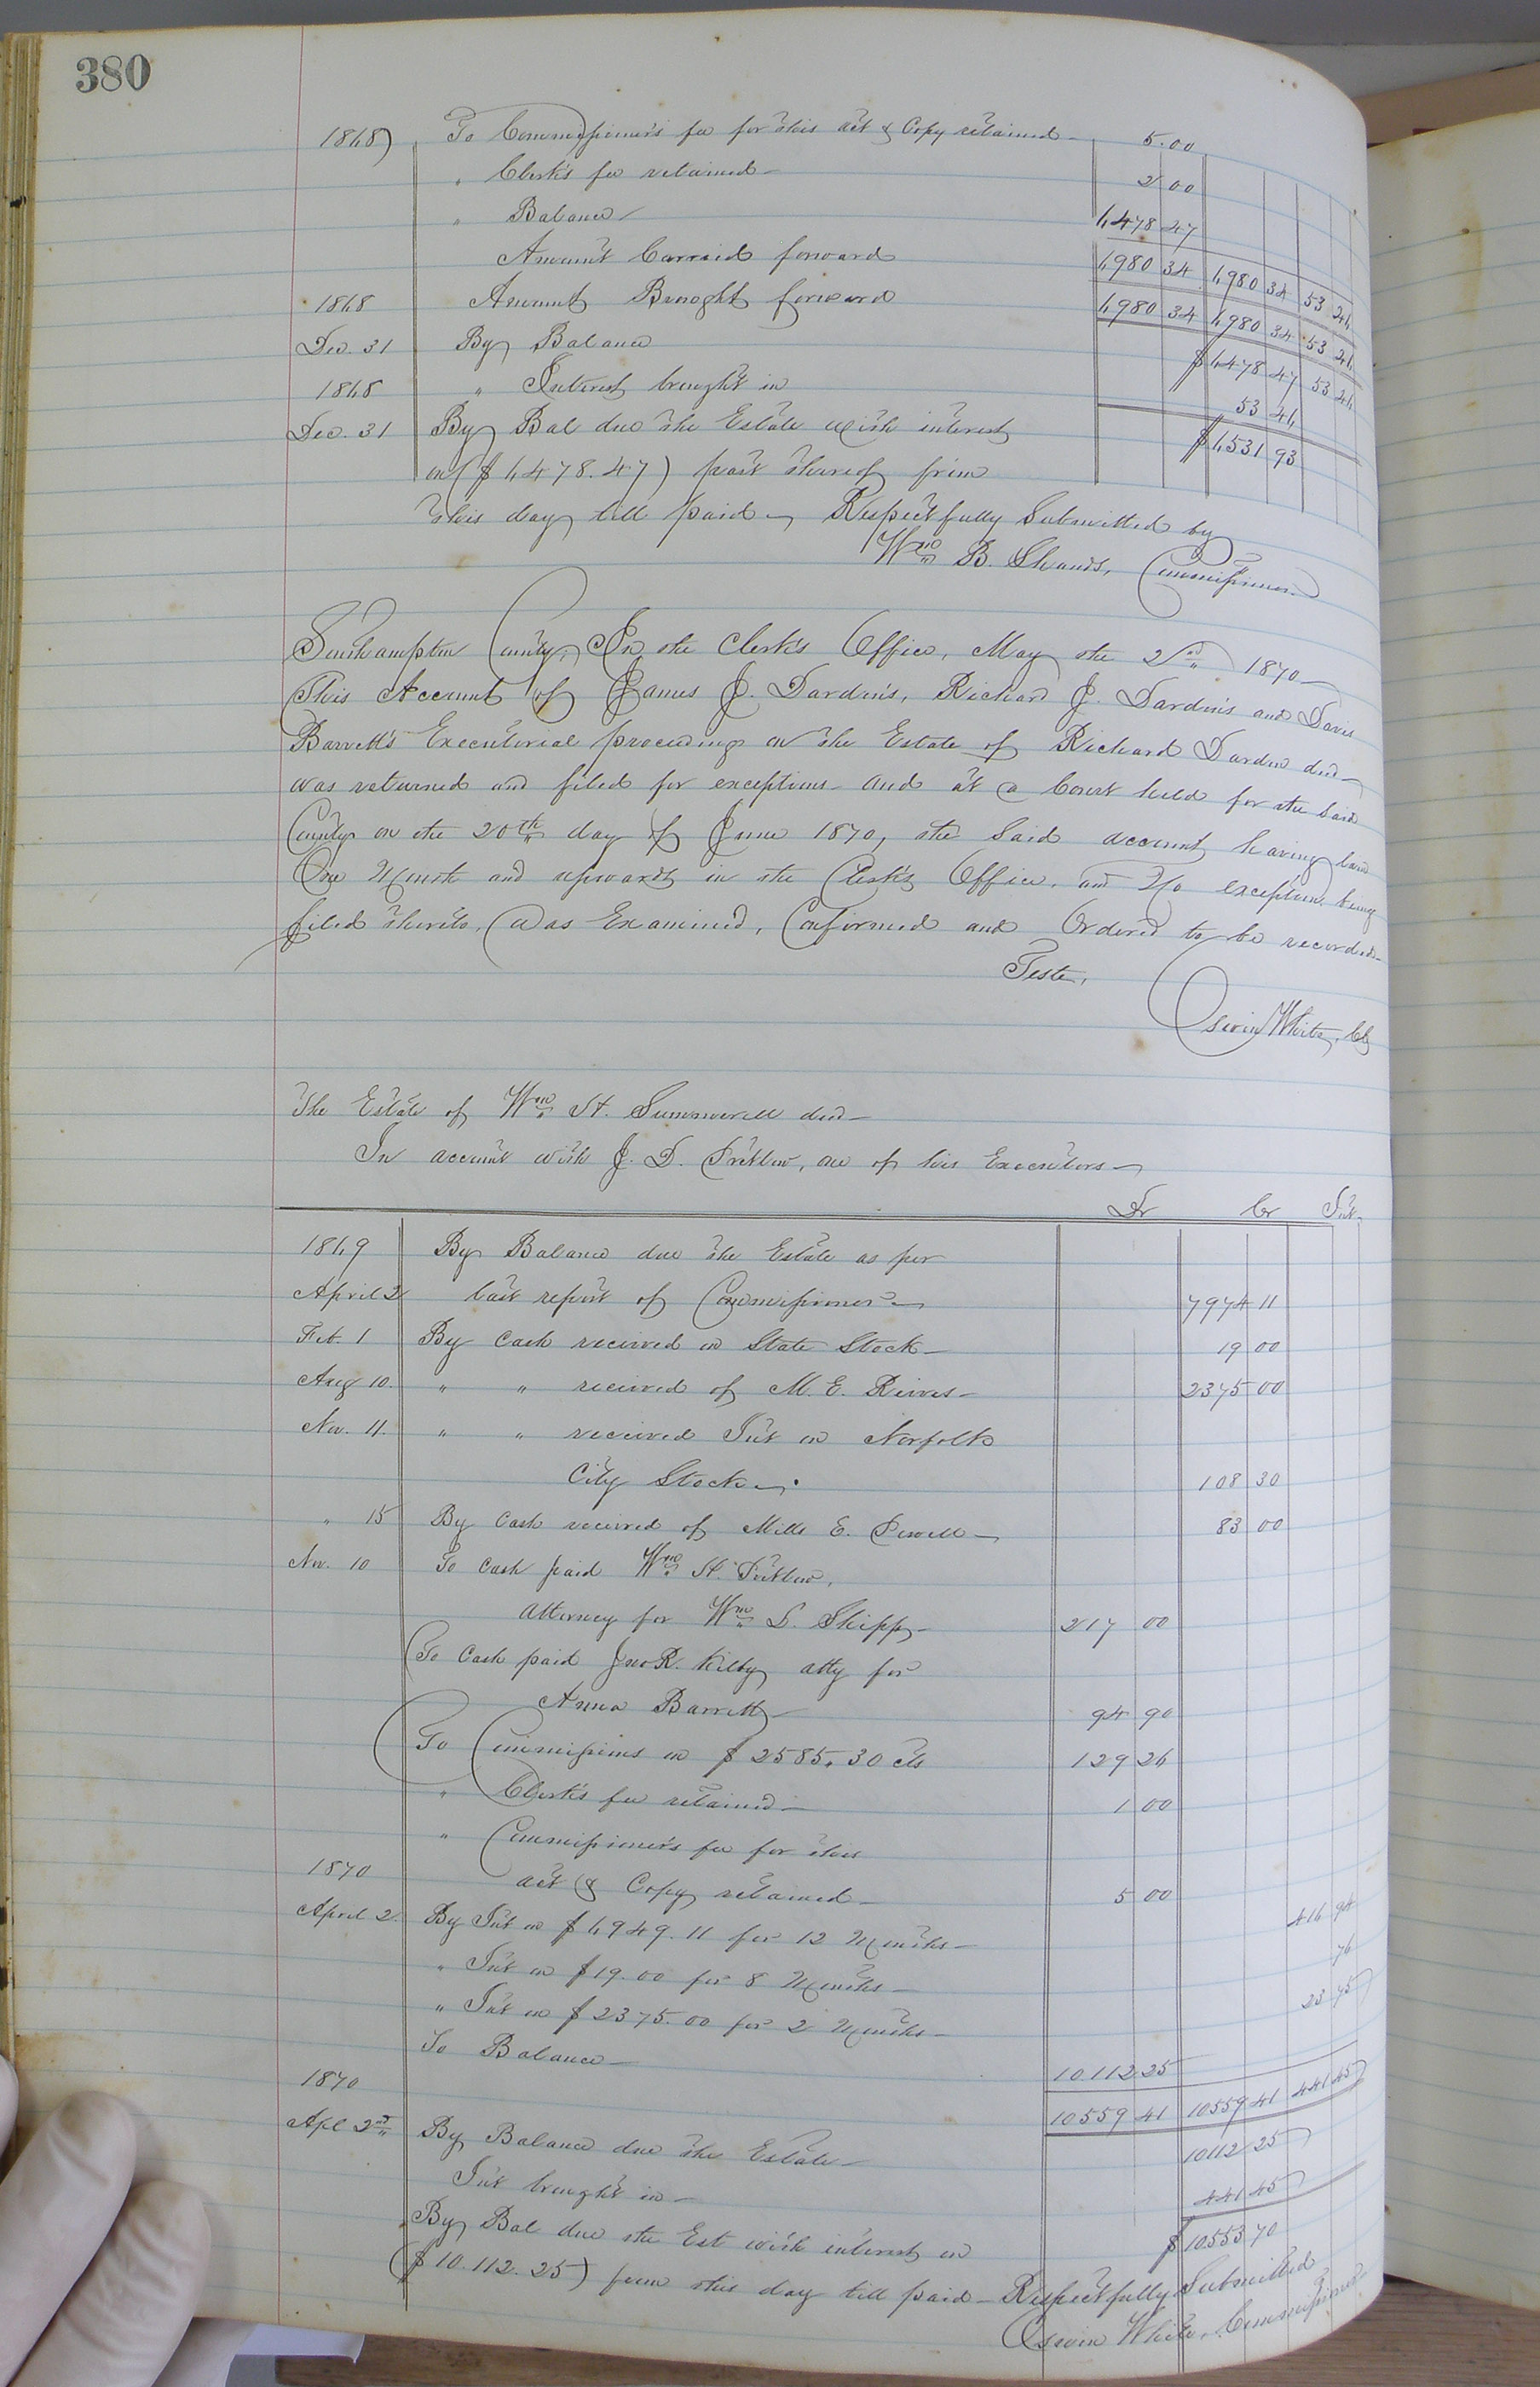 380
1868 To Commissioner's fee for this act & Copy retained 5.00
" Clerk's fee retained 2 00
" Balance 6,478 47
Amount Carraid forward 6,980 34 6,980 34 53 46
1868 Amount Brought forward 6,980 34 6,980 34 53 46
Dec. 31 By Balance $6,478 47 53 46
1868 " Interest brought in 53 46
Dec. 31 By Bal due the Estate with interest $6,531 93
on ($6,478.47) part thereof from
this day till paid Respectfully Submitted by
Wm B. Shands, Commissioner.
Southampton County, In the Clerk's Office, May the 2nd 1870
This Account of James J. Darden's, Richard J. Darden's and Davis
Barrett's Executorial proceedings on the Estate of Richard Darden decd
was returned and filed for exceptions and at a Court held for the said
County on the 20th day of June 1870, the said account having laid
One Month and upwards in the Clerk's Office, and No exceptions being
filed thereto, Was Examined, Confirmed and Ordered to be recorded
Teste,
Oswin White, Clk
The Estate of Wm H. Summerell decd
In account with J. D. Pretlow, one of his Executors
Dr Cr Int.
1869 By Balance due the Estate as per
April 2 last report of Commissioner 7974 11
Feb. 1 By Cash received on State Stock 19 00
Aug 10. " " received of M. E. Reives 2375 00
Nov. 11. " " received Int on Norfolk
City Stock 108 30
" 15 By Cash received of Mills E. Powell 83 00
Nov. 10 To Cash paid Wm H. Pretlow,
attorney for Wm S. Shipp 217 00
To Cash paid Jno R. Kilby atty for
Anna Barrett 94 90
To Commissions on $2585.30 cts 129 26
" Clerk's fee retained 1 00
" Commissioner's fee for this
1870 act & Copy retained 5 00
April 2. By Int on $6,949.11 for 12 Months 416 94
" Int on $19.00 for 8 Months 76
" Int on $2375.00 for 2 Months 23 75
To Balance 10.112 25
1870 10559 41 10559 41 441 45
Apl 2nd By Balance due the Estate 10112 25
Int brought in 441 45
By Bal due the Est with interest on $10553 70
($10.112.25) from this day till paid Respectfully Submitted
Oswin White, Commissioner